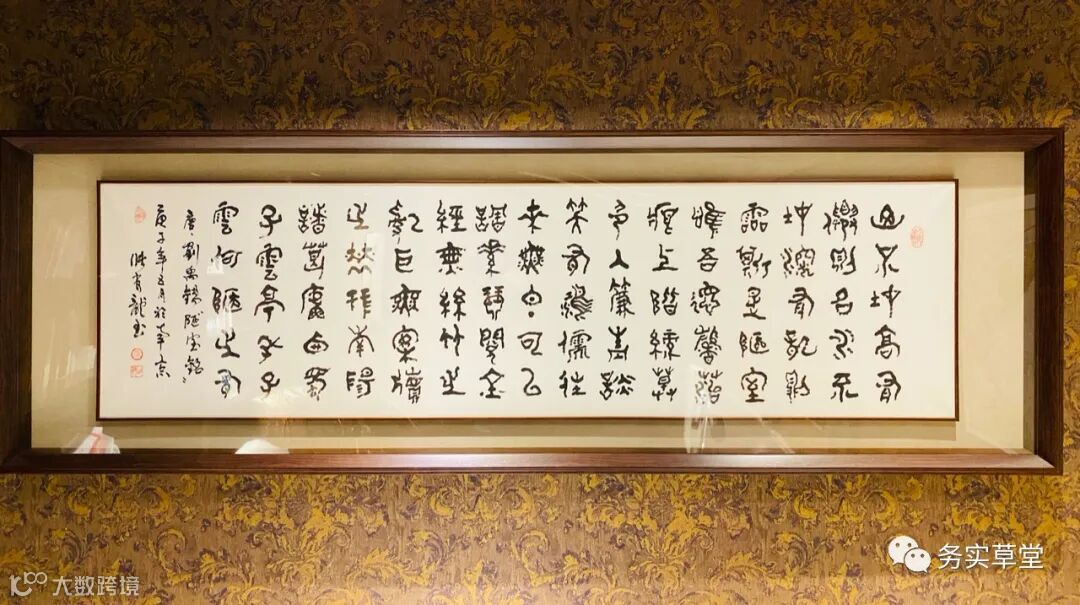 山不在高有
僊則名水不
在深有龍則
靈斯是陋室
惟吾德馨苔
痕上階綠草
色入簾青談
笑有鴻儒往
來無白丁可以
調素琴閱金
經無絲竹之
亂耳無案牘
之勞形南陽
諸葛廬西蜀
子雲亭孔子
雲何陋之有
唐劉禹錫陋室銘
庚子年五月於南京
龍書
务实草堂
大数跨境